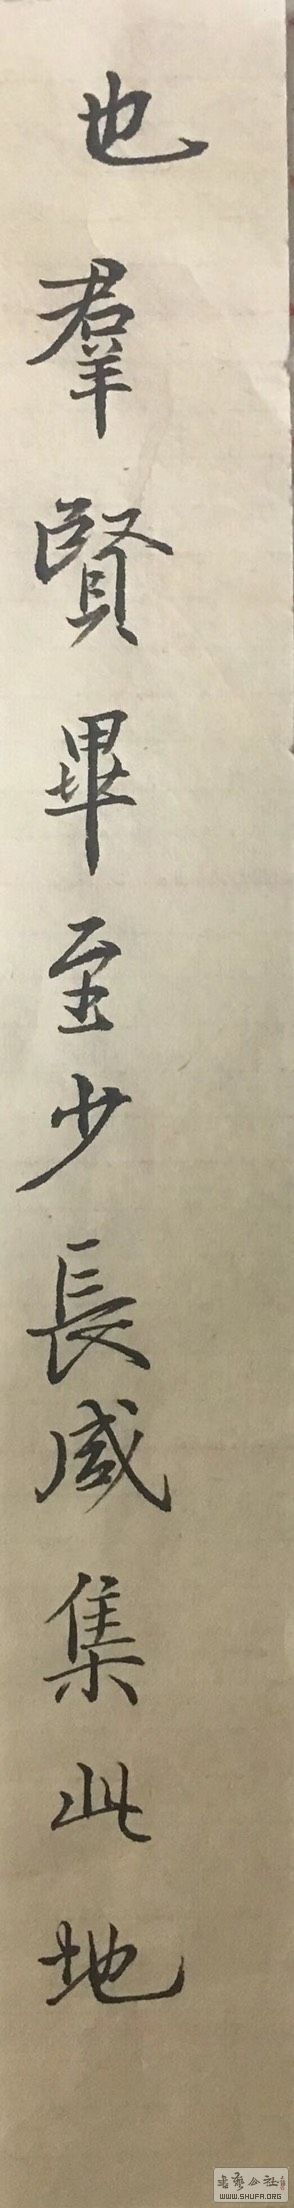 也羣賢畢至少長咸集此地
書藝公社
WWW.SHUFA.ORG